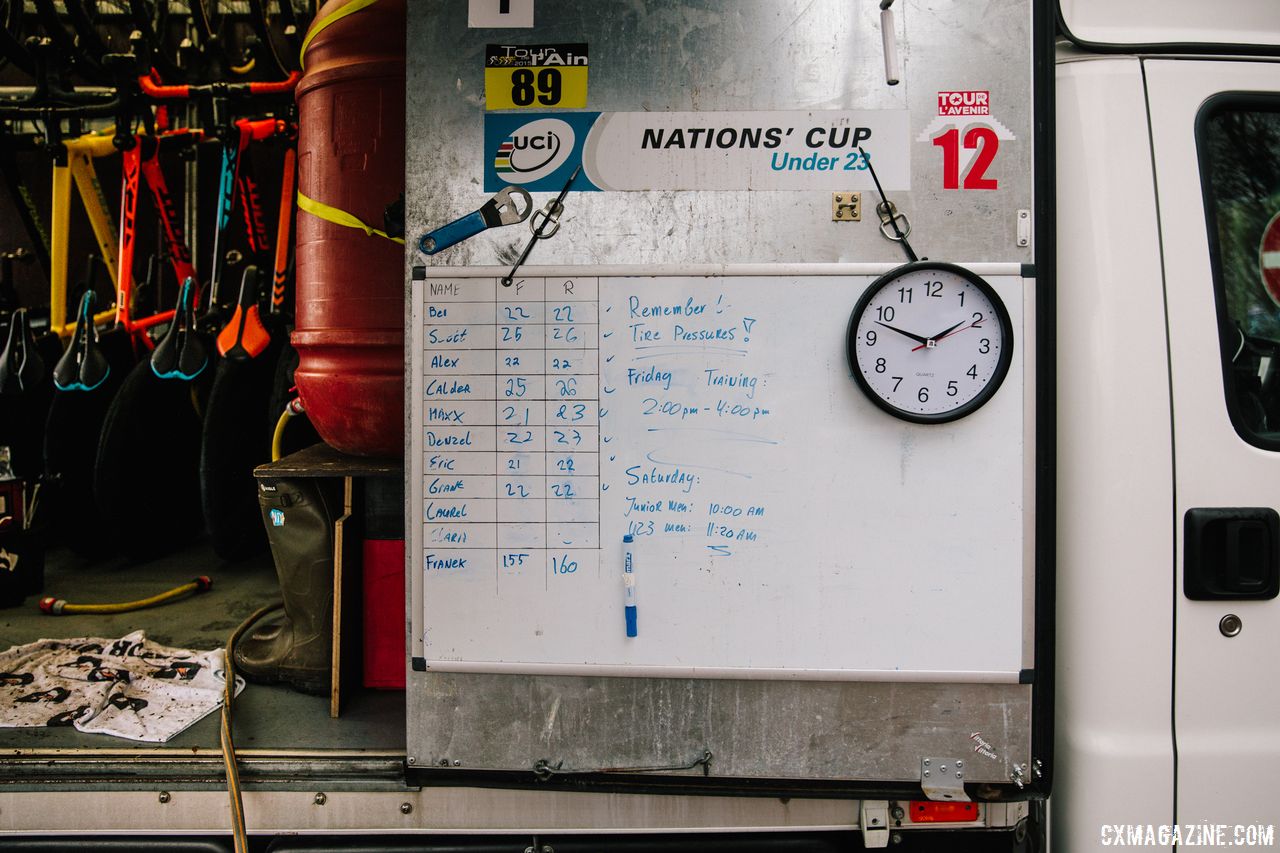 Tour
2015 l'Ain
89
UCI
NATIONS' CUP
Under 23
TOUR DE
L'AVENIR
12
NAME F R
Ben 22 22
Scott 25 26
Alex 22 22
Calder 25 26
Maxx 21 23
Denzel 22 23
Eric 21 22
Grant 22 22
Laurel
Franek 155 160
Remember!
Tire Pressures!
Friday Training:
2:00pm - 4:00pm
Saturday:
Junior Men: 10:00 AM
U23 men: 11:20 AM
12 1 2 3 4 5 6 7 8 9 10 11
QUARTZ
Vittoria
Vittoria
CXMAGAZINE.COM